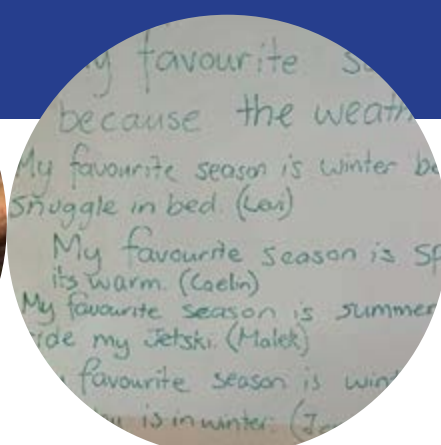 favourite
because the
My favourite season is winter
snuggle in bed. (Levi)
My favourite season is
its warm. (Caelin)
My favourite season is summer
my Jetski. (Malek)
favourite season is
is in winter.